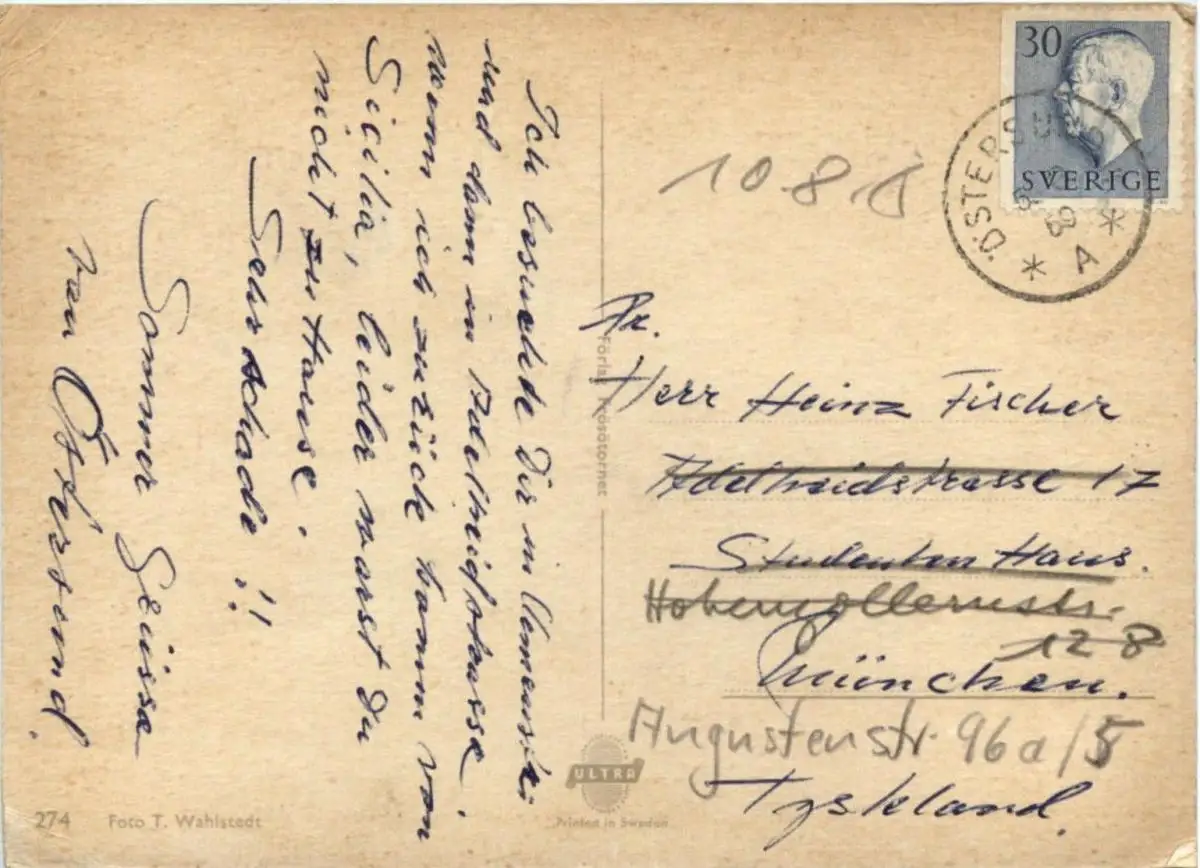 Ich besuchte Dir in
und dann in Adelheidstrasse.
wenn ich zurück kamm von
Sicilia, leider warst Du
nicht zu Hause.
Sehr schade!!
Sommer Grüsse
von Östersund.
30
SVERIGE
ÖSTERSUND
A
108
Herr Heinz Fischer
Adelheidstrasse 17
Studenten Haus.
Hohenzollernstr.
128
München.
Augustenstr. 96a/5
Tyskland.
Förlag Frösötornet
ULTRA
Printed in Sweden
274 Foto T. Wahlstedt